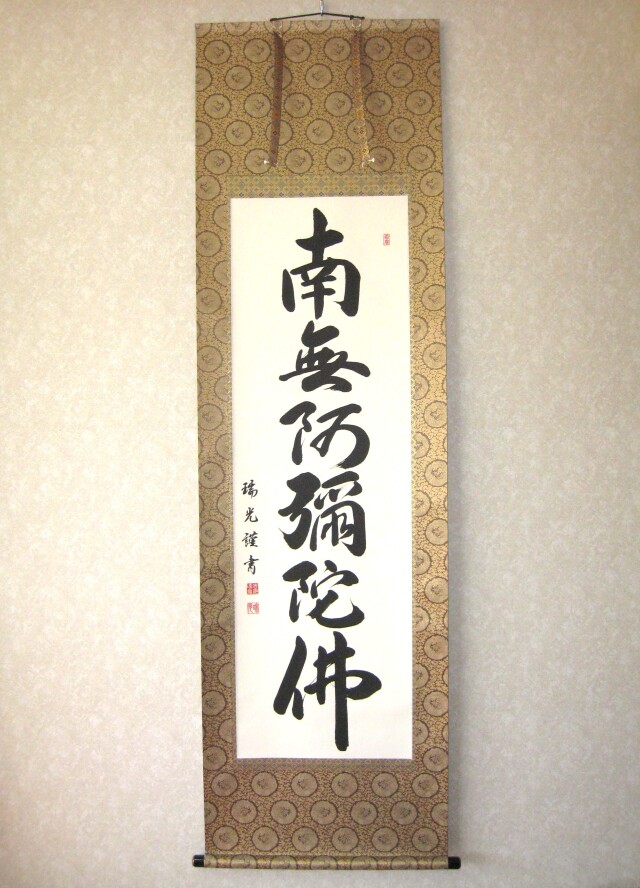 南無阿彌陀佛
瑞光謹書